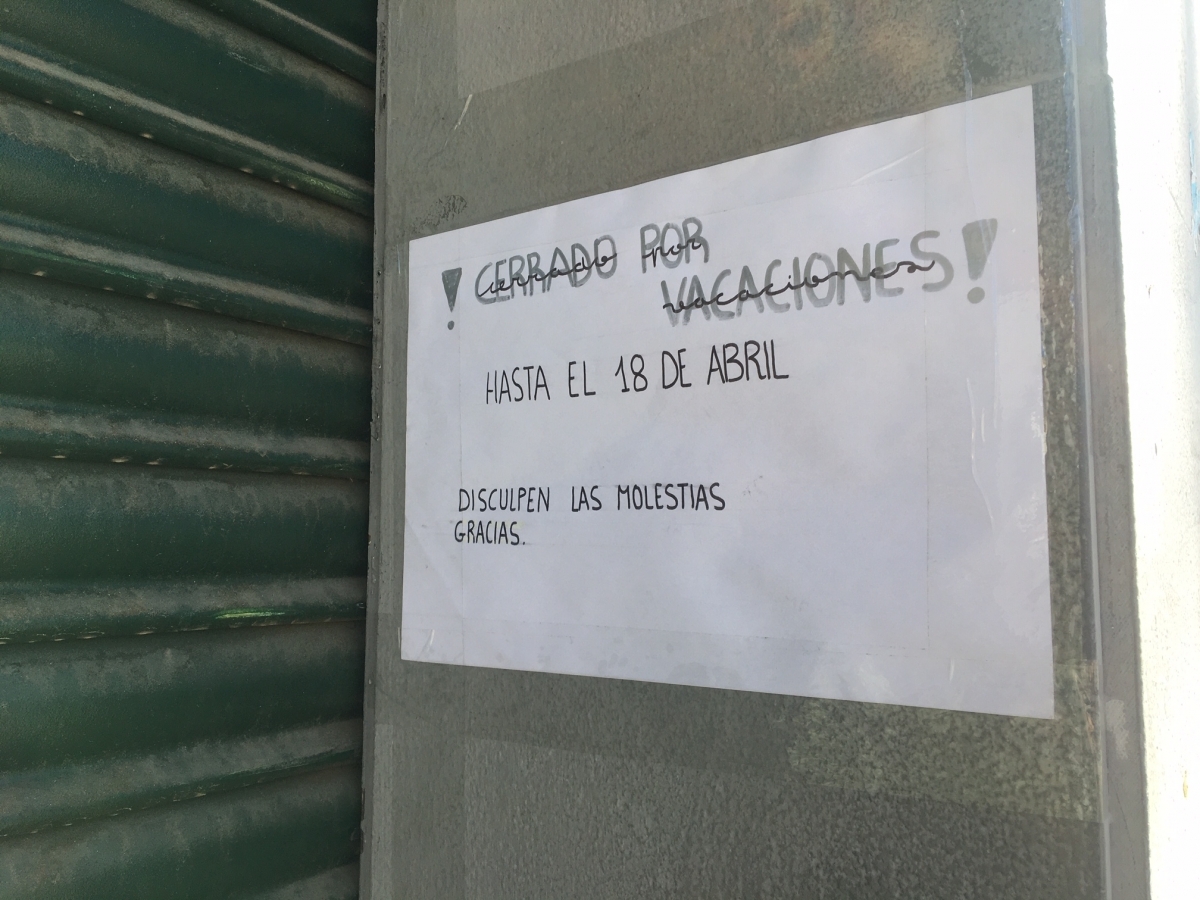 ! CERRADO POR
cerrado por
VACACIONES!
vacaciones
HASTA EL 18 DE ABRIL
DISCULPEN LAS MOLESTIAS
GRACIAS.